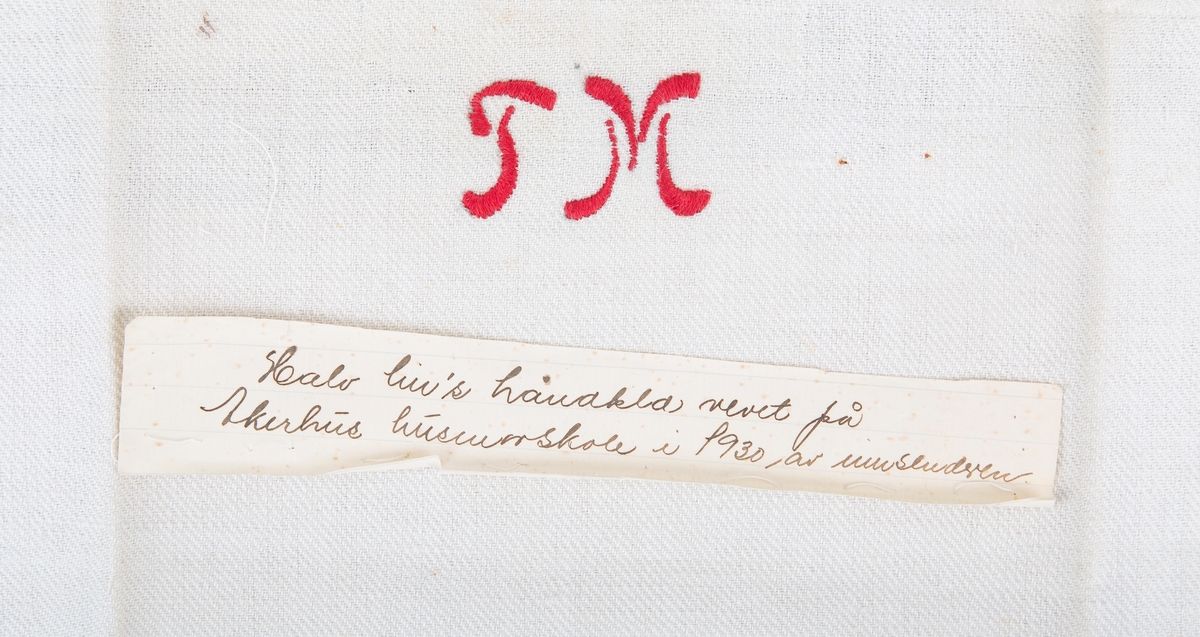 TM
Halv lin's håndkld vevet på
Akerhus húsmorskole i 1930, av innsenderen.